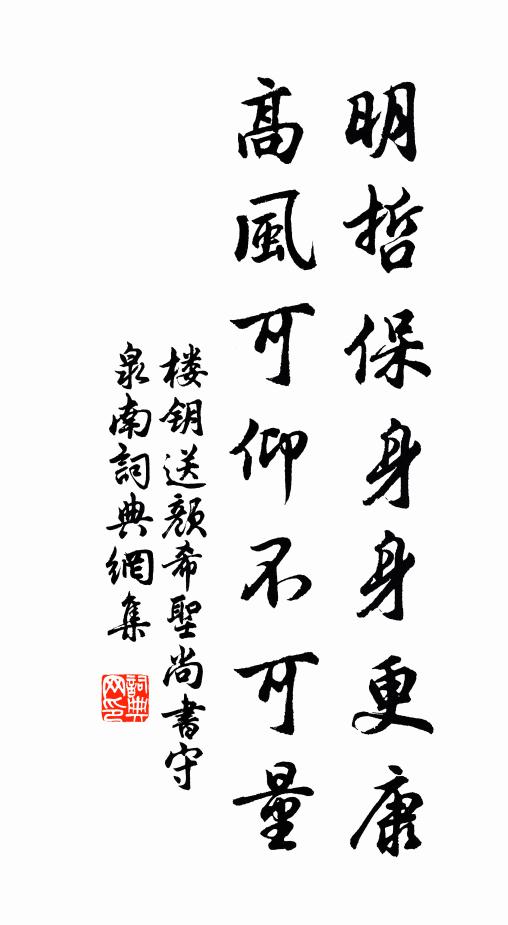 明哲保身身更康
高風可仰不可量
楼钥送颜希聖尚書守
泉南詞典網集
詞典网印